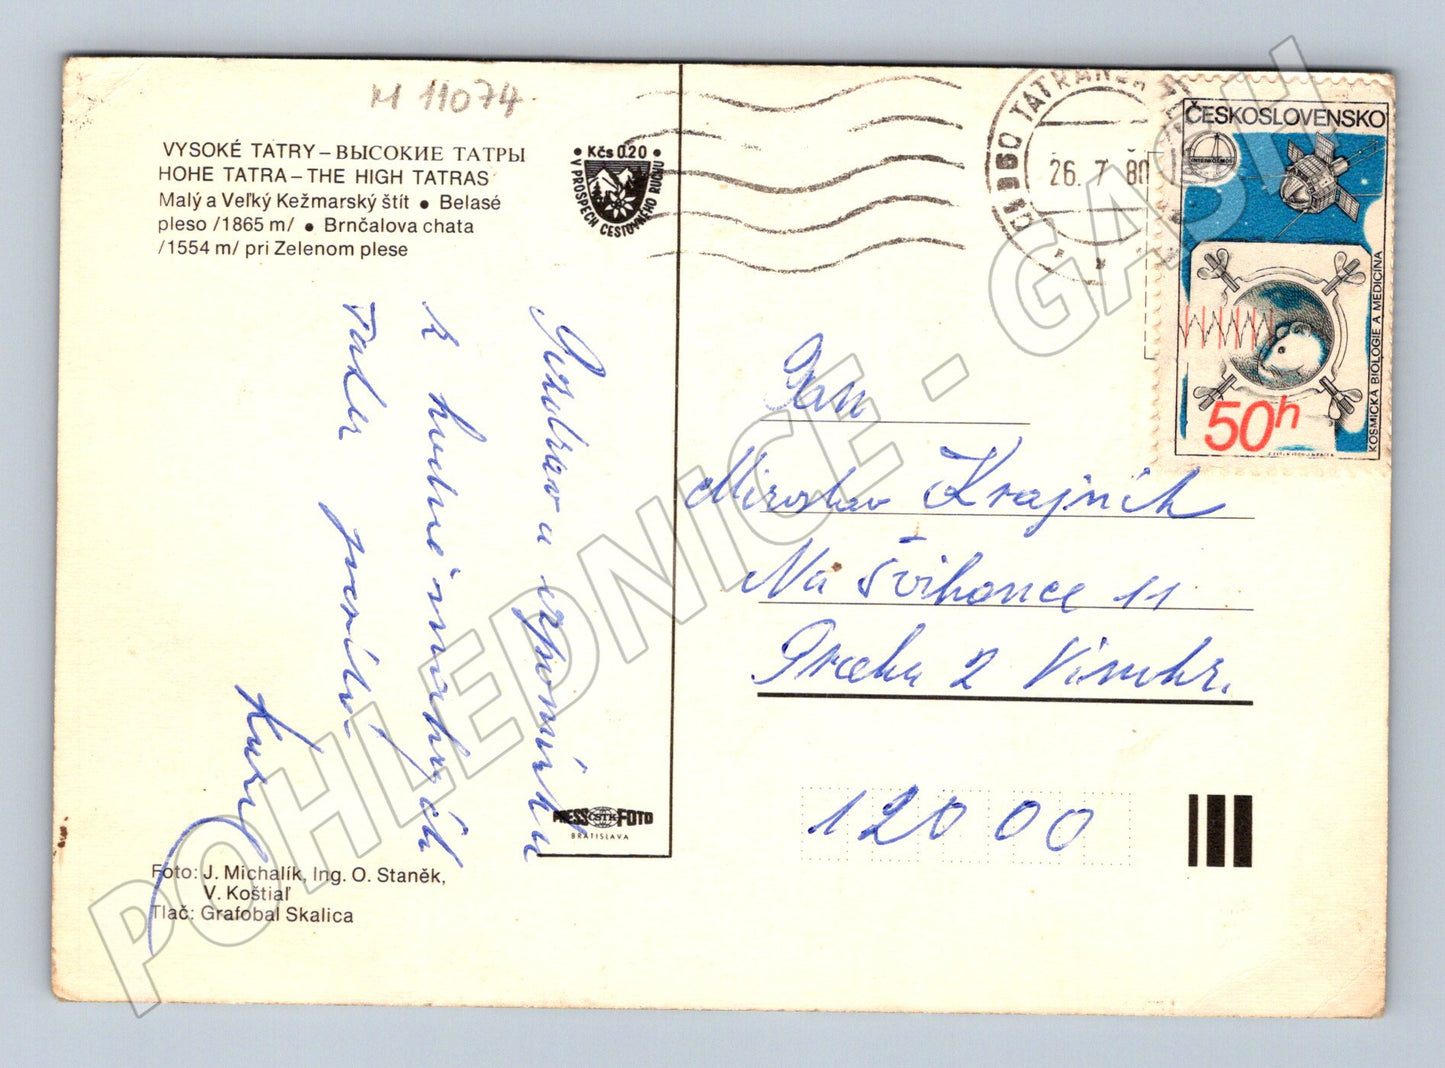 M 11074
VYSOKÉ TATRY – ВЫСОКИЕ ТАТРЫ
HOHE TATRA – THE HIGH TATRAS
Malý a Veľký Kežmarský štít • Belasé
pleso /1865 m/ • Brnčalova chata
/1554 m/ pri Zelenom plese
• Kčs 0.20 •
V PROSPECH CESTOVNÉHO RUCHU
26. 7. 80
ČESKOSLOVENSKO
INTERKOSMOS
KOSMICKÁ BIOLOGIE A MEDICÍNA
50h
Pozdrav a vzpomínku
z
Tater posílá
Karel
Pan
Miroslav Krajník
Na Švihance 11
Praha 2 Vinohr.
120 00
PRESS ČSTK FOTO
BRATISLAVA
Foto: J. Michalík, Ing. O. Staněk,
V. Koštiaľ
Tlač: Grafobal Skalica
POHLEDNICE - GASH